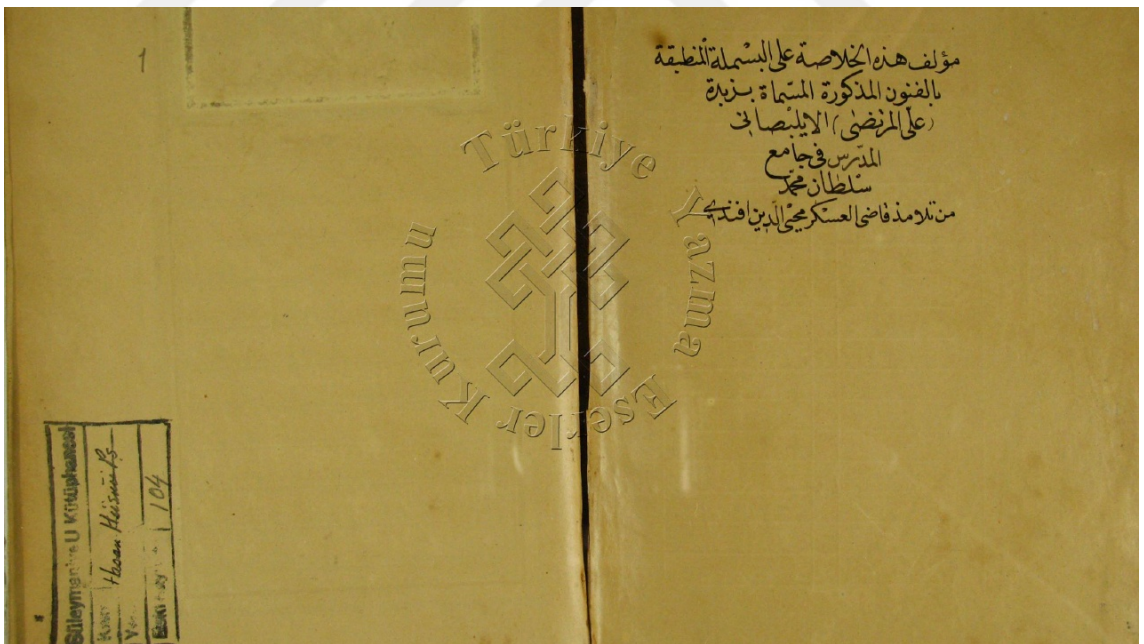 مؤلف هذه الخلاصة على البسملة المنطبقة
بالفنون المذكورة المسماة بزبدة
(على المرتضى) الايلبصانى
المدرس فى جامع
سلطان محمد
من تلامذ قاضى العسكر محيى الدين افندى
1
Türkiye Yazma Eserler Kurumu
Süleymaniye U Kütüphanesi
Hasan Hüsnü Pş
104